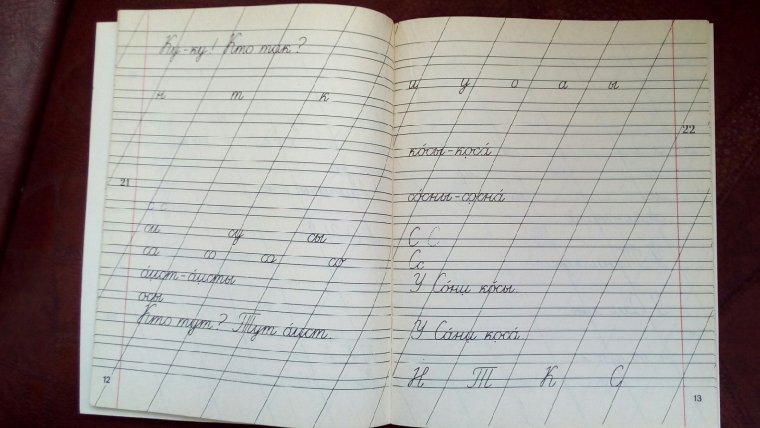 Ку-ку! Кто так?
н т к
21
С С
си су сы
са со са со
а́ист-а́исты
осы
Кто тут? Тут а́ист.
12
и у о а ы
22
ко́сы-коса́
со́сны-сосна́
С С
Сс
У Со́ни ко́сы.
У Са́ни коса́.
Н Т К С
13